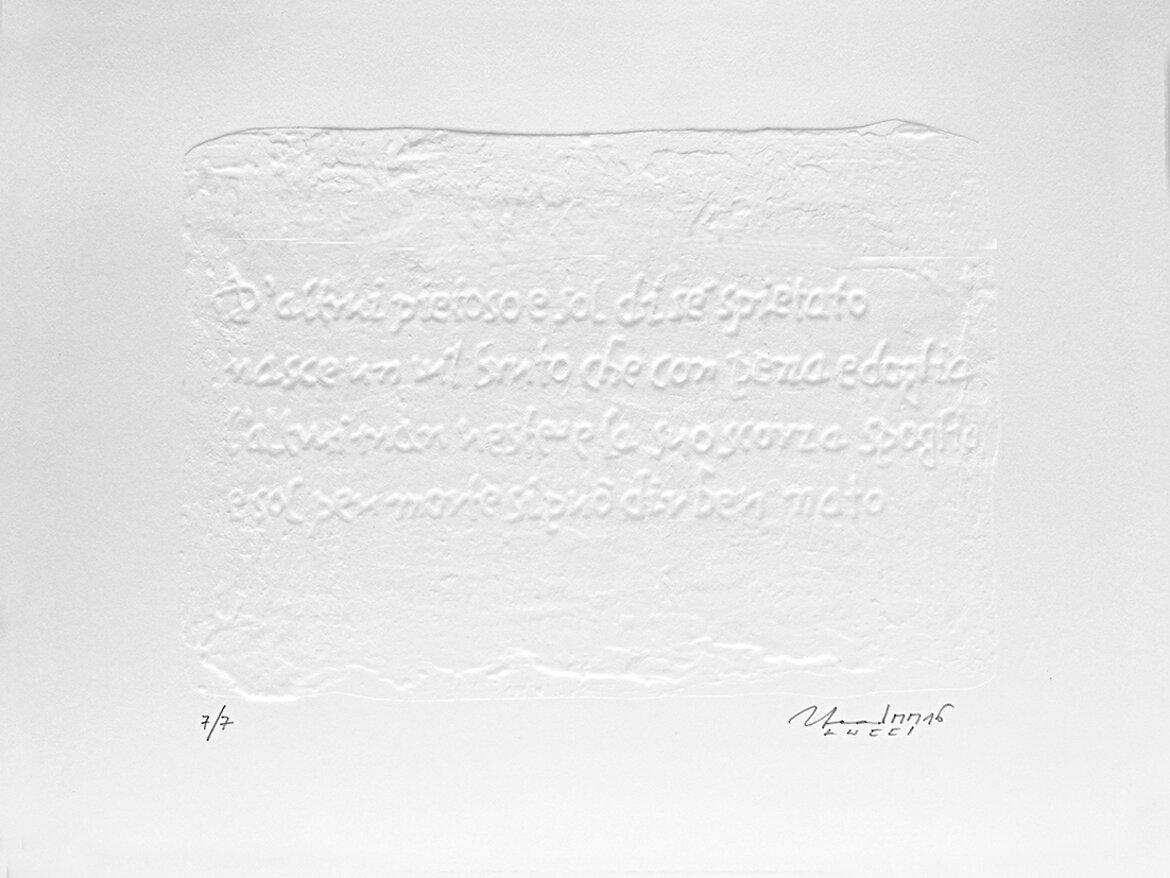 D'altrui pietoso e sol di sé spietato
nasce un vil bruto che con pena e doglia
l'altrui man veste e la suo scorza spoglia
e sol per morte si può dir ben nato
7/7
MM16
LUCCI